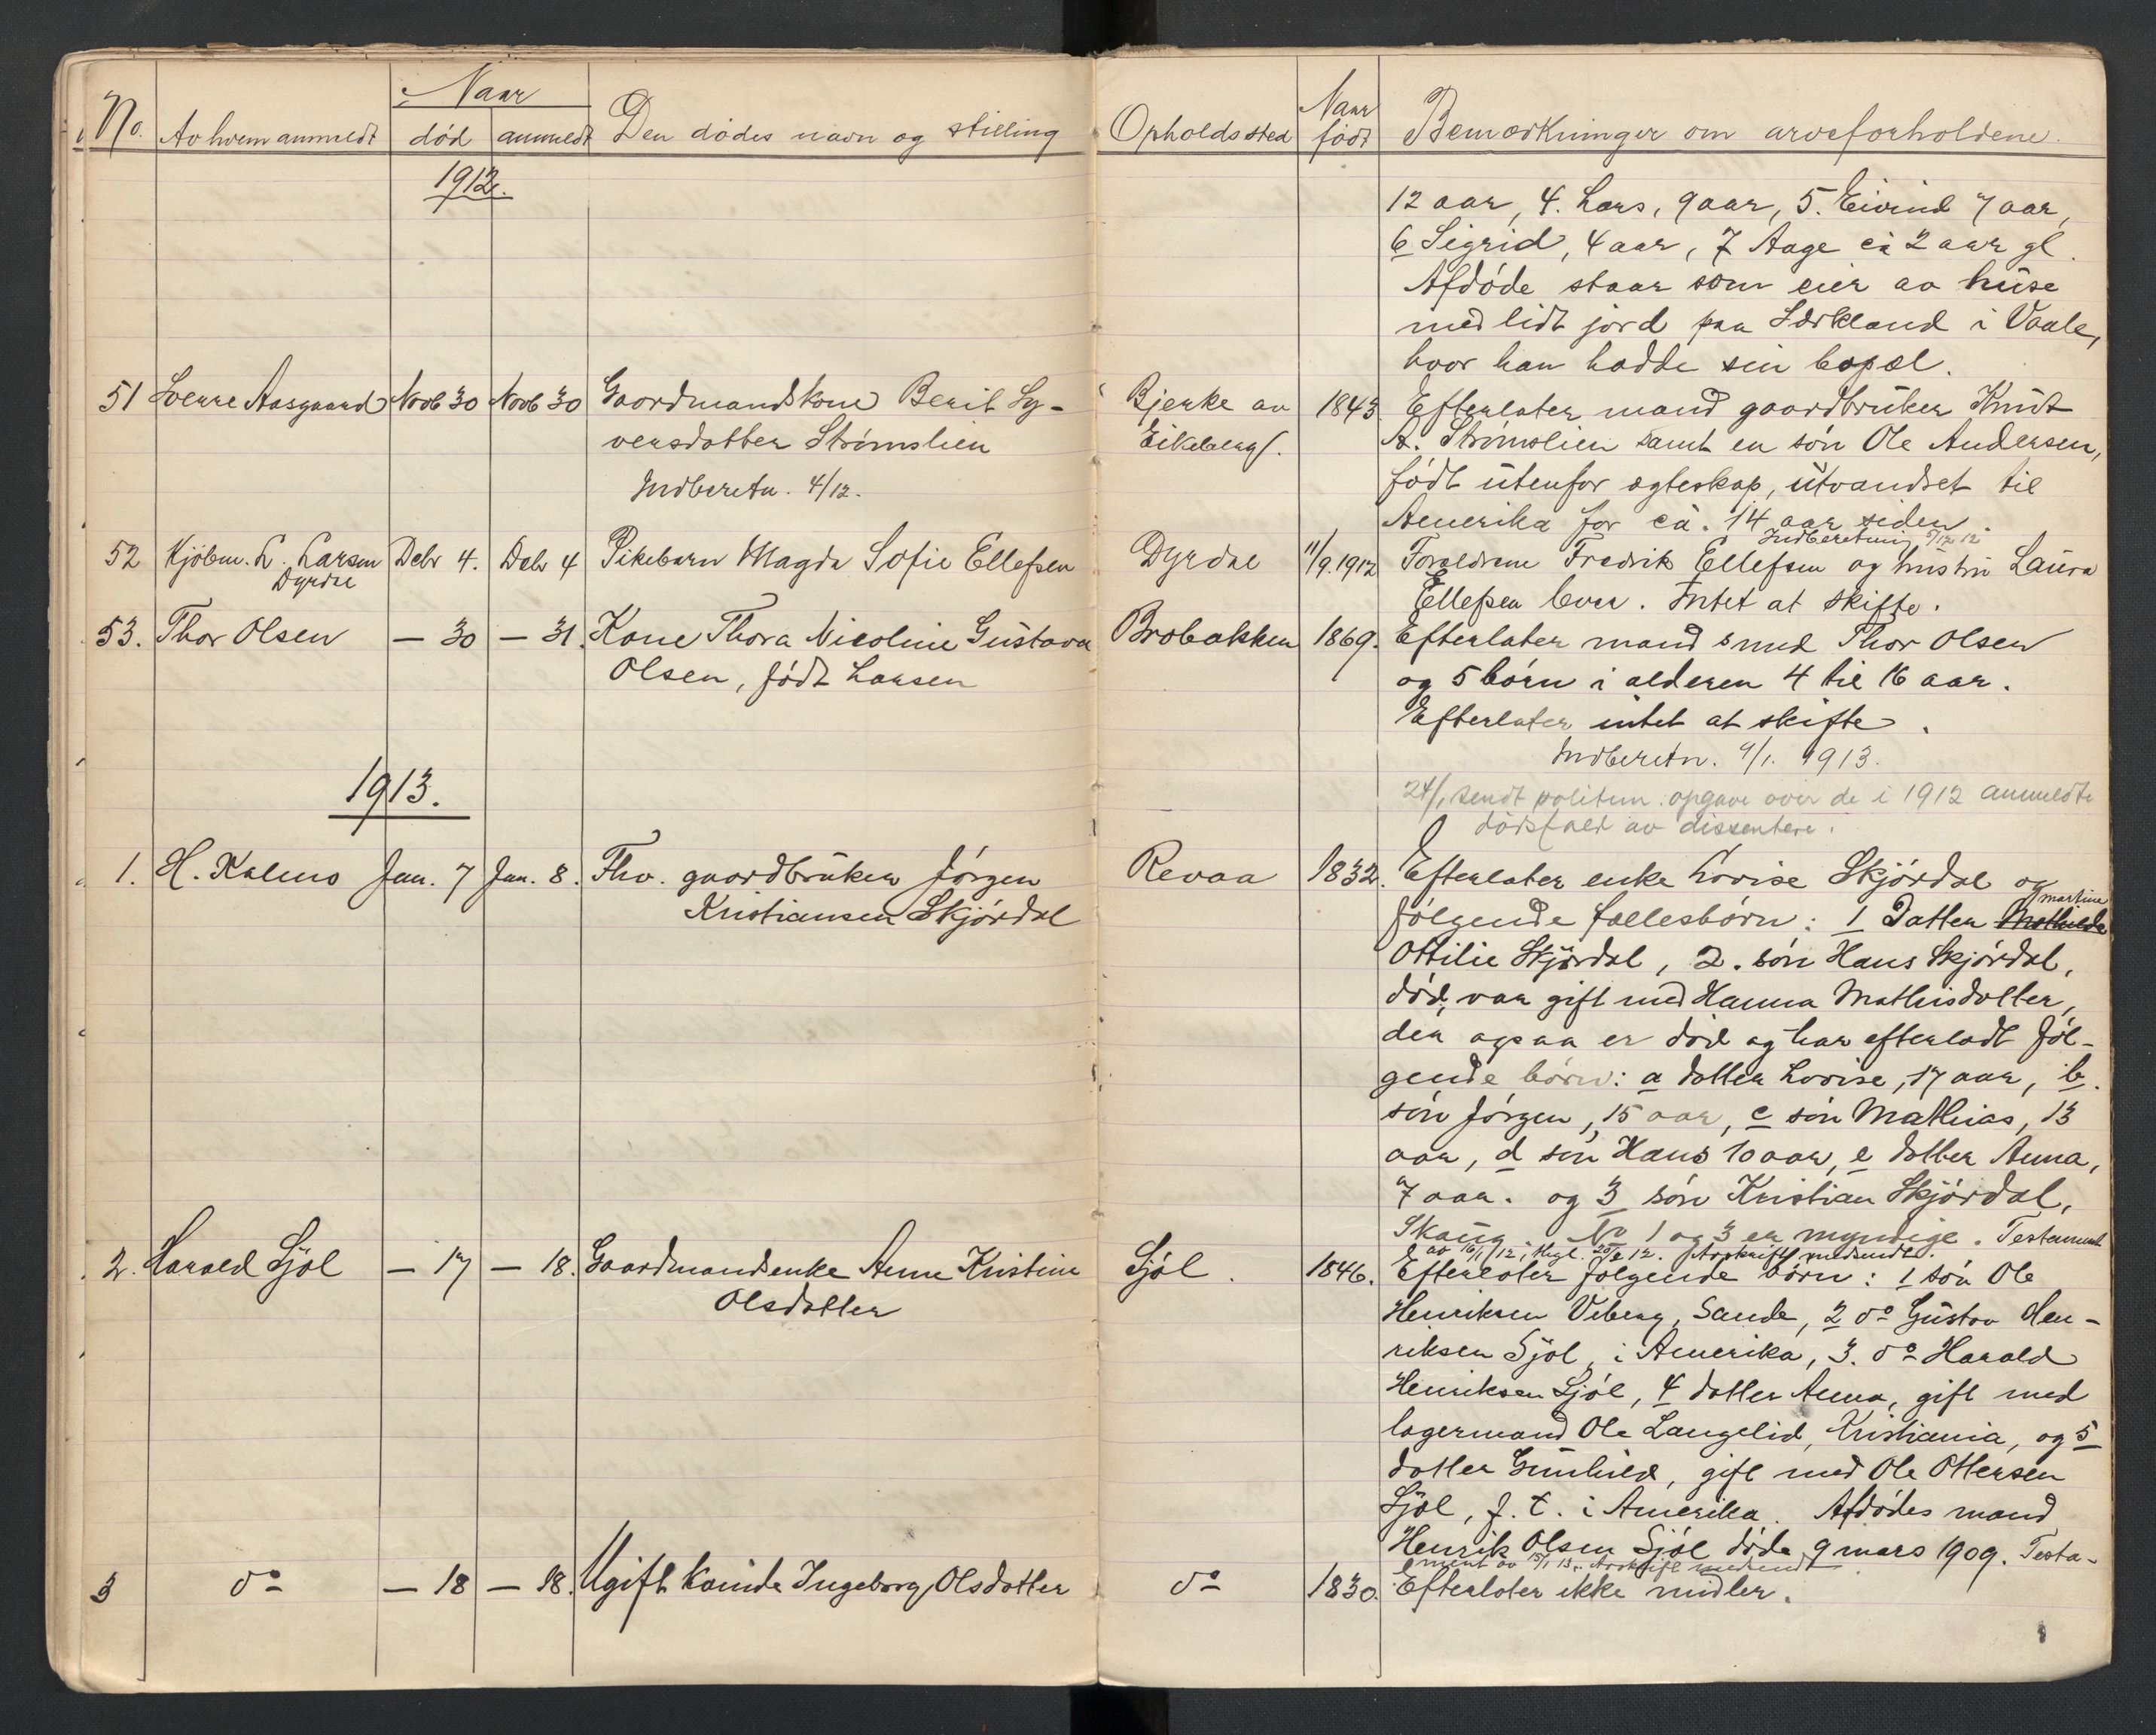 No. Av hvem anmeldt Naar død anmeldt Den dødes navn og stilling Opholdssted Naar født Bemærkninger om arveforholdene.
1912.
12 aar, 4. Lars, 9 aar, 5. Eivind 7 aar,
6 Sigrid, 4 aar, 7 Aage ca 2 aar gl.
Afdøde staar som eier av huse
med lidt jord paa Lærkland i Vaale,
hvor han hadde sin bopæl.
51 Sverre Aasgaard Novb 30 Novb 30 Gaardmandskone Berit Sy- Bjerke av 1843. Efterlater mand gaardbruker Knut
versdatter Strømslien Eikeberg. A. Strømslien samt en søn Ole Andersen,
Indberetn. 4/12. født utenfor ægteskap, utvandret til
Amerika for ca. 14 aar siden.
Indberetning 5/12 12
52 Kjøbm. L. Larsen Debr 4. Debr 4 Pikebarn Magda Sofie Ellefsen Dyrdal 11/9.1912 Forældrene Fredrik Ellefsen og hustru Laura
Dyrdal Ellefsen lever. Intet at skifte.
53. Thor Olsen — 30 — 31. Kone Thora Nicoline Gustava Brobakken 1869. Efterlater mand smed Thor Olsen
Olsen, født Larsen og 5 børn i alderen 4 til 16 aar.
Efterlater intet at skifte.
Indberetn. 4/1. 1913.
24/1 sendt politim. opgave over de i 1912 anmeldte
dødsfald av dissentere.
1913.
1. H. Kalmo Jan. 7 Jan. 8. Fhv. gaardbruker Jørgen Revaa 1832. Efterlater enke Lovise Skjørdal og
Kristiansen Skjørdal følgende fællesbørn: 1 Datter Mathilde Martine
Ottilie Skjørdal, 2. søn Hans Skjørdal,
død, var gift med Hanna Mathisdatter,
der ogsaa er død og har efterladt føl-
gende børn: a datter Lovise, 17 aar, b.
søn Jørgen, 15 aar, c søn Mathias, 13
aar, d søn Hans 10 aar, e datter Anna,
7 aar. og 3 søn Kristian Skjørdal,
Skoug. No 1 og 3 er myndige. Testament
av 16/1 12, tlgl. 20/2 12. Avskrift medsendt.
2. Harald Sjøl — 17 — 18. Gaardmandsenke Anne Kristine Sjøl. 1846. Efterlater følgende børn: 1 søn Ole
Olsdatter Henriksen Veberg, Sande, 2 do Gustav Hen-
riksen Sjøl, i Amerika, 3. do Harald
Henriksen Sjøl, 4 datter Anna, gift med
lagermand Ole Langelid, Kristiania, og 5
datter Gunhild, gift med Ole Ottersen
Sjøl, f. t. i Amerika. Afdødes mand
Henrik Olsen Sjøl døde 9 mars 1909. Testa-
ment av 15/1 13. Avskrift medsendt
3 do — 18 — 18. Ugift kvinde Ingeborg Olsdatter do 1830. Efterlater ikke midler.